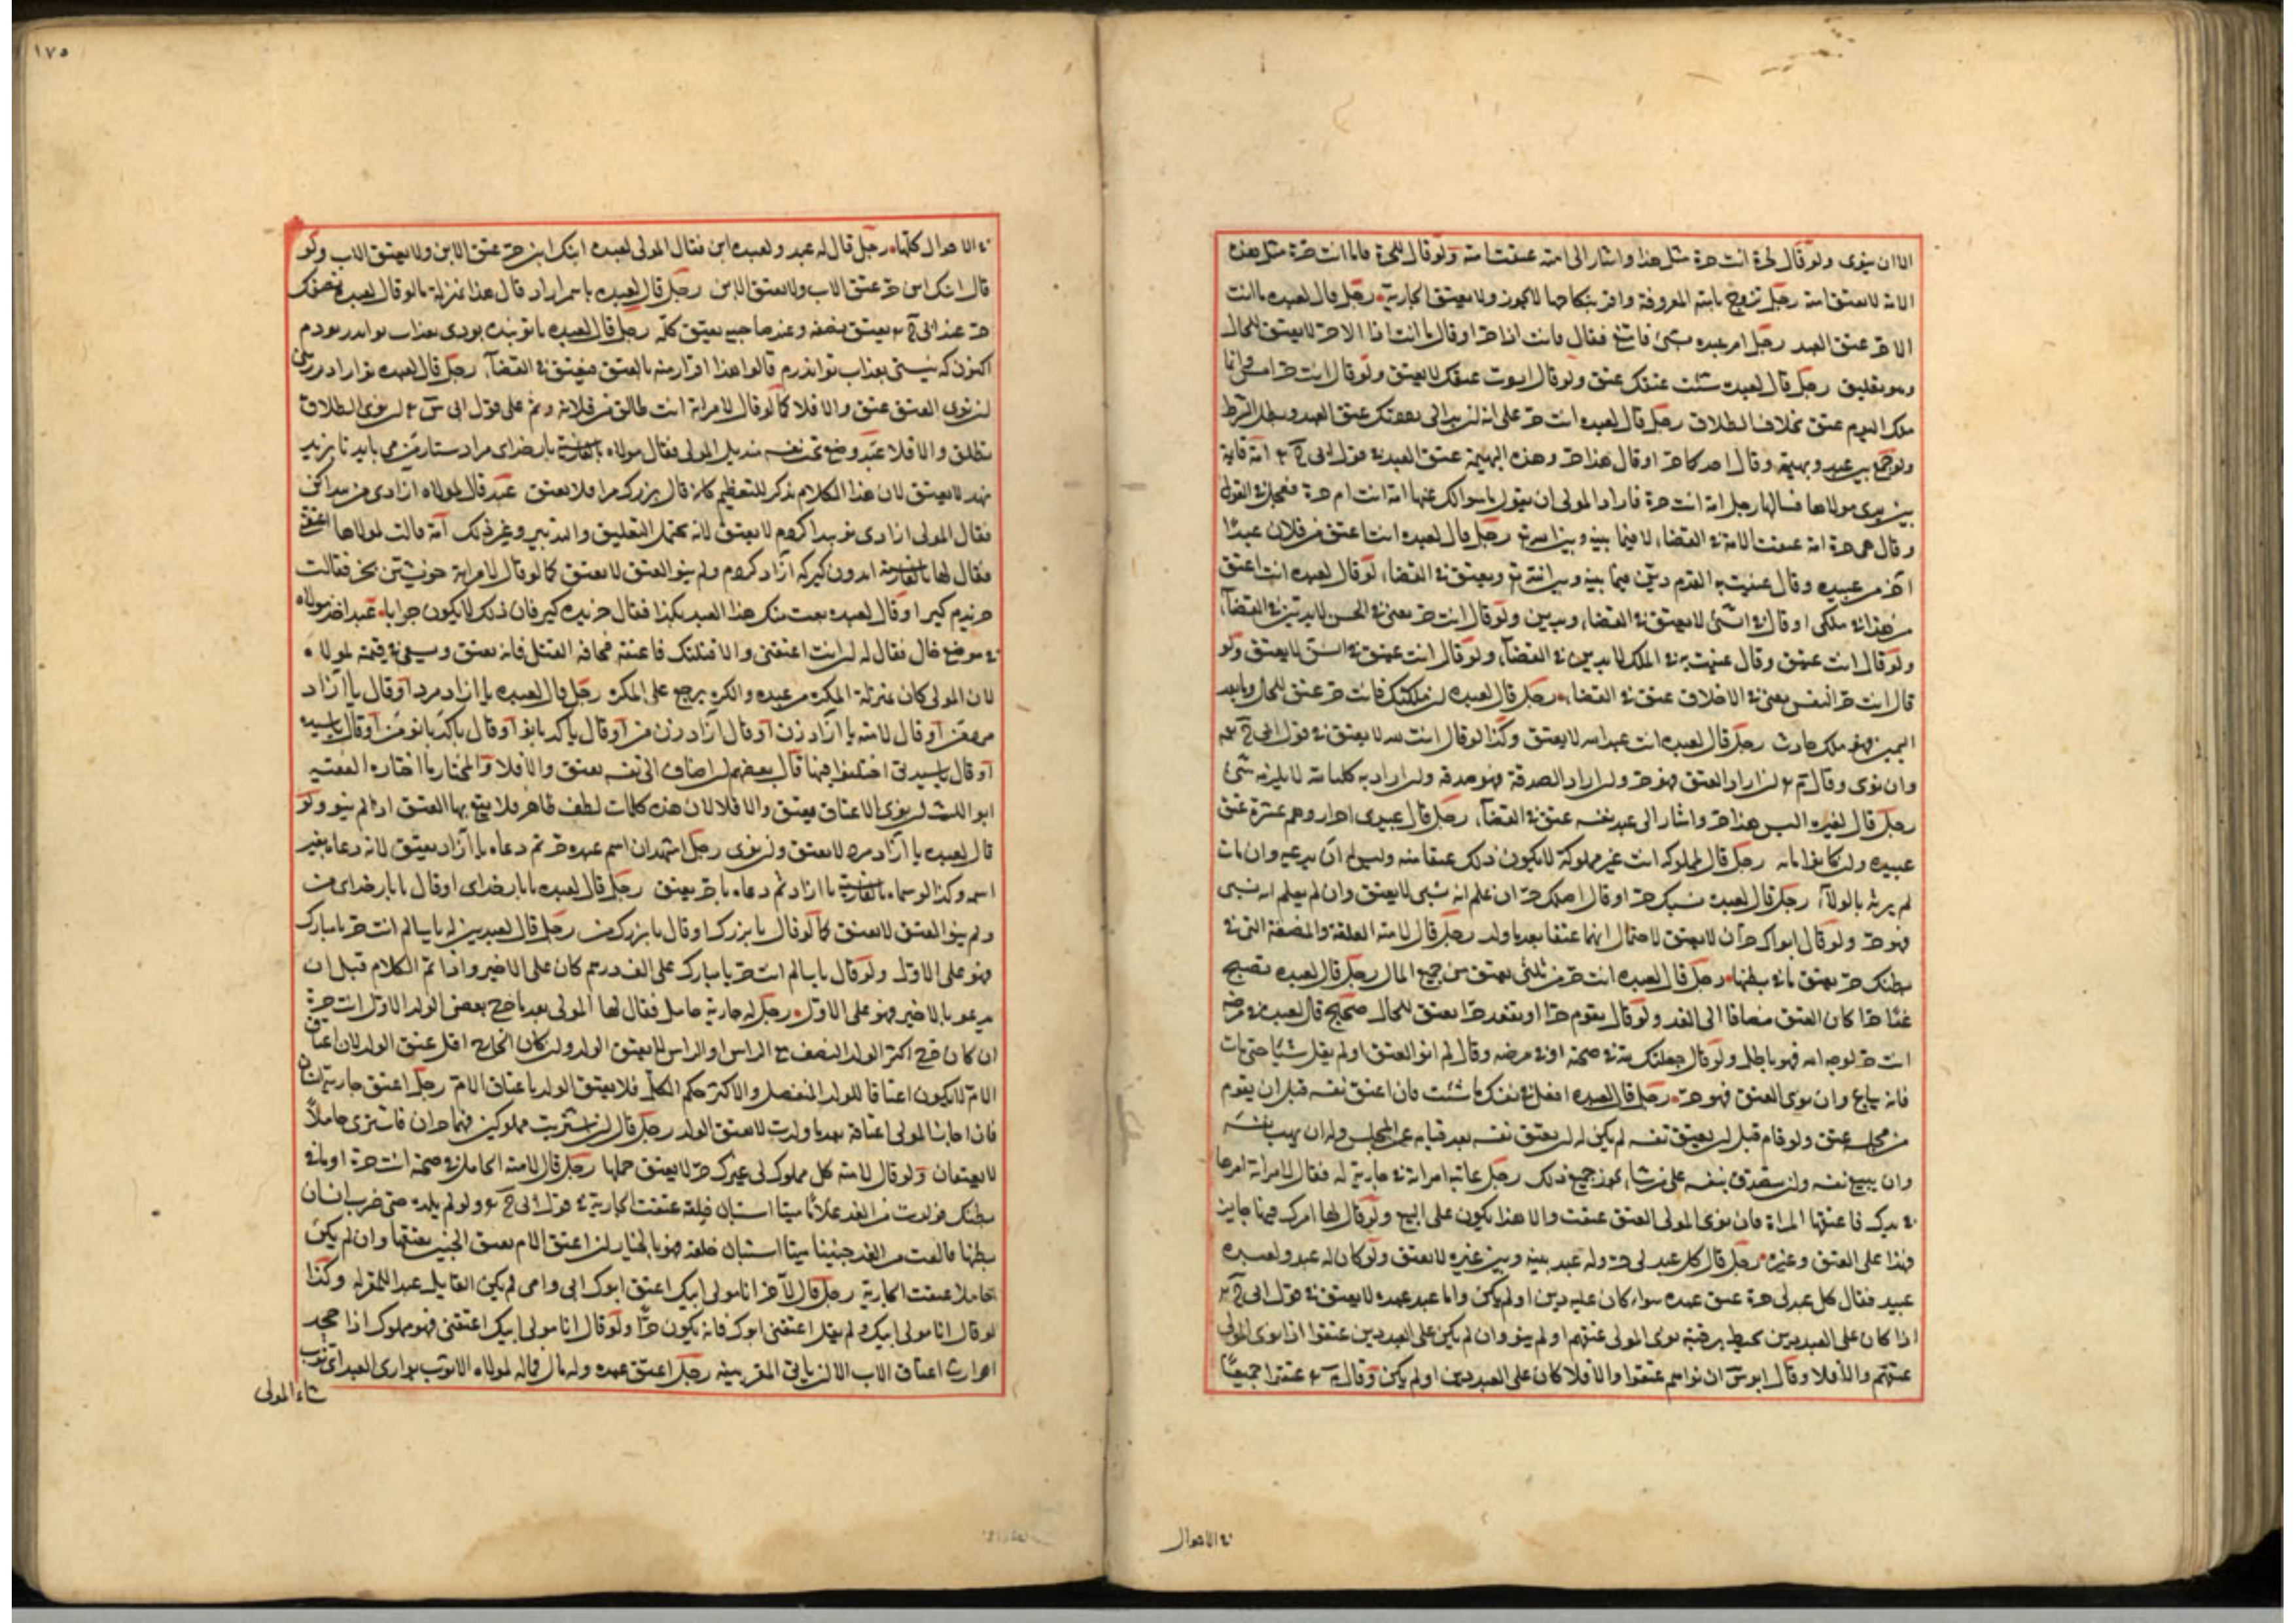 الا ان ينوى ولو قال لحرة انت حرة مثل هذا واشار الى امته عتقت امته ولو قال للحرة ما انت حرة مثل هذه
الامة لا يعتق امته رجل تزوج بابنته المعروفة واقر بنكاحها لا يجوز ولا يعتق الجارية رجل قال لعبده ما انت
الا حر عتق العبد رجل امر عبده بشئ فامتنع فقال فانت اذا حر او قال ما انت اذا الا حر لا يعتق للحال
وهو تعليق رجل قال لعبده شئت عتقك عتق ولو قال اعتقك لا يعتق ولو قال انت حر امس وانما
ملك اليوم عتق بخلاف الطلاق رجل قال لعبده انت حر على انه لعتق العبد وبطل الشرط
ولو جمع بين عبد وبهيمة وقال احدكما حر او قال هذا حر وهذه البهيمة عتق العبد في قول ابى ح امة قايمة
بين يدى مولاها فسالها رجل امة انت حرة فاراد المولى ان يقول ما سوالك عنها امة انت ام حرة فعجل في القول
وقال هى حرة امة عتقت الامة في القضاء لا فيما بينه وبين الله تع رجل قال لعبده انت اعتق من فلان عبدا
اخر من عبيده وقال عنيت به القدم دين فيما بينه وبين الله تع ويعتق في القضاء لو قال لعبده انت اعتق
من هذا في ملكى او قال في السن لا يعتق في القضاء ويدين ولو قال انت حر يعنى في الحسن لا يدين في القضاء
ولو قال انت عتيق وقال عنيت به في الملك لا يدين في القضاء ولو قال انت عتيق في السن لا يعتق ولو
قال انت حر النفس يعنى في الاخلاق عتق في القضاء رجل قال لعبده ان ملكتك فانت حر عتق للحال وما بعد
اليمين فهو ملك حادث رجل قال لعبده انت عبد الله لا يعتق وكذا لو قال انت لله لا يعتق في قول ابى ح
وان نوى وقال م ان اراد العتق فهو حر وان اراد الصدقة فهو صدقة وان اراد به كلنا لله لا يلزمه شئ
رجل قال لغيره اليس هذا حر واشار الى عبد نفسه عتق في القضاء رجل قال عبيدى احرار وهم عشرة عتق
عبيده وان كانوا مائة رجل قال لمملوكه انت غير مملوك لا يكون ذلك عتقا منه وليس له ان يدعيه وان مات
لم يرثه بالولاء رجل قال لعبده نسبك حر او قال اصلك حر ان علم انه سبى لا يعتق وان لم يعلم انه سبى
فهو حر ولو قال ابواك حران لا يعتق لاحتمال انهما عتقا بعد ما ولد رجل قال لامته العلقة والمضغة التى في
بطنك حر يعتق ما في بطنها رجل قال لعبده انت حر من ثلثى يعتق من جميع المال رجل قال لعبده تصبح
غدا حرا كان العتق مضافا الى الغد ولو قال يقوم حرا او يقعد حرا يعتق للحال صحيح قال لعبد
انت حر لوجه الله فهو باطل ولو قال جعلتك لله في صحته او في مرضه وقال لم انو العتق او لم يقل شيئا حتى مات
فانه يباع وان نوى العتق فهو حر رجل قال لعبده افعل في نفسك ما شئت فان اعتق نفسه قبل ان يقوم
من مجلسه عتق ولو قام قبل ان يعتق نفسه لم يكن له ان يعتق نفسه بعد قيامه عن المجلس وله ان يهب نفسه
وان يبيع نفسه وان يتصدق بنفسه على من شاء يجوز جميع ذلك رجل عاتبه امراته في جارية له فقال لامراته امرها
في يدك فاعتقتها المراة فان نوى المولى العتق عتقت والا هذا يكون على البيع ولو قال لها امرك فيها جايز
فهذا على العتق وغيره رجل قال كل عبد لى حر وله عبد بينه وبين غيره لا يعتق ولو كان له عبد ولعبده
عبيد فقال كل عبد لى حر عتق عبده سواء كان عليه دين او لم يكن واما عبد عبده لا يعتق في قول ابى ح
اذا كان على العبد دين يحيط برقبته نوى المولى عتقهم او لم ينو وان لم يكن على العبد دين عتقوا اذا نوى المولى
عتقهم والا فلا وقال ابو س ان نواهم عتقوا والا فلا كان على العبد دين او لم يكن وقال م عتقوا جميعا
في الاحوال
١٧٥
في الاحوال كلها رجل قال له عبد ولعبده ابن فقال المولى لعبده ابنك ابن حر عتق الابن ولا يعتق الاب ولو
قال ابنك ابن حر عتق الاب ولا يعتق الابن رجل قال لعبده ياسم ازاد قال هذا بمنزلة ما لو قال لعبده نصفك
حر عند ابى ح يعتق نصفه وعند صاحبيه يعتق كله رجل قال لعبده تا تو بنده بودى بعذاب تو اندر بودم
اكنون كه نيستى بعذاب تو اندرم قالوا هذا اقرار منه بالعتق فيعتق في القضاء رجل قال لعبده
ان نوى العتق عتق والا فلا كما لو قال لامراته انت طالق من فلانة وثم على قول ابى س ان نوى الطلاق
تطلق والا فلا عبد وضع تحت نفسه منديل المولى فقال مولاه بالفارسية بار خداى مرا دستار من مى بايد تا بزير
نهد لا يعتق لان هذا الكلام يذكر للتعظيم كانه قال بزرك مرا فلا يعتق عبد قال لمولاه ازادى من بيدا كن
فقال المولى ازادى تو بيدا كردم لا يعتق لانه يحتمل التعليق والتدبير وغير ذلك امة قالت لمولاها اعتقنى
فقال لها بالفارسية ايدون كير كه ازاد كردم ولم ينو العتق لا يعتق كما لو قال لامراته خويشتن بخر فقالت
خريدم كير او قال لعبده بعت منك هذا العبد بكذا فقال خريده كير فان ذلك لا يكون جوابا عبد اخذ مولاه
في موضع خال فقال له ان انت اعتقتنى والا قتلتك فاعتقه مخافة القتل فانه يعتق ويسعى في قيمته لمولاه
لان المولى كان بمنزلة المكره من عبده والكره يرجع على المكره رجل قال لعبده يا ازاد مرد او قال يا ازاد
مرد من او قال لامته يا ازاد زن او قال ازاد زن من او قال يا كدبانو او قال يا كدبانو من او قال يا سيده
او قال يا سيدتى اختلفوا فيها قال بعضهم ان اضاف الى نفسه يعتق والا فلا والمختار ما اختاره الفقيه
ابو الليث ان نوى الاعتاق فيعتق والا فلا لان هذه كلمات لطف ظاهر فلا يقع بها العتق اذا لم ينو ولو
قال لعبده يا ازاد مرد لا يعتق وان نوى رجل اشهد ان اسم عبده حر ثم دعاه يا ازاد يعتق لانه دعاه بغير
اسمه وكذا لو سماه بالفارسية يا ازاد ثم دعاه يا حر يعتق رجل قال لعبده يا بار خداى او قال يا بار خداى من
ولم ينو العتق لا يعتق كما لو قال يا بزرك او قال يا بزرك من رجل قال لعبدين له يا سالم انت حر يا مبارك
فهو على الاول ولو قال يا سالم انت حر يا مبارك على الف درهم كان على الاخير واذا تم الكلام قبل ان
يدعو بالاخير فهو على الاول رجل له جارية حامل فقال لها المولى بعد ما خرج بعض الولد الاول انت حرة
ان كان خرج اكثر الولد النصف مع الراس او الراس لا يعتق الولد وان كان الخارج اقل عتق الولد لان اعتاق
الام لا يكون اعتاقا للولد المنفصل والاكثر حكم الكل فلا يعتق الولد باعتاق الام رجل اعتق جارية
فان اجاز المولى اعتاقه بعد ما ولدت لا يعتق الولد رجل قال ان اشتريت مملوكين فهما حران فاشترى حاملا
لا يعتقان ولو قال لامته كل مملوك لى غيرك حر لا يعتق حملها رجل قال لامته الحامل في صحته انت حرة او ما في
بطنك فولدت من الغد غلاما ميتا استبان خلقه عتقت الجارية في قول ابى ح ولو لم يلده حتى ضرب انسان
بطنها فالقت من الغد جنينا ميتا استبان خلقه فهو بالخيار ان اعتق الام يعتق الجنين بعتقها وان لم يكن
حاملا عتقت الجارية رجل قال لاخر انا مولى ابيك اعتق ابوك ابى وامى لم يكن القايل عبدا للمقر له وكذا
لو قال انا مولى ابيك ولم يقل اعتقنى ابوك فانه يكون حرا ولو قال انا مولى ابيك اعتقنى فهو مملوك اذا جحد
الوارث اعتاق الاب الا ان ياتى المقر ببينة رجل اعتق عبده وله مال فماله لمولاه الا ثوب يوارى العبد اى ثوب
شاء المولى